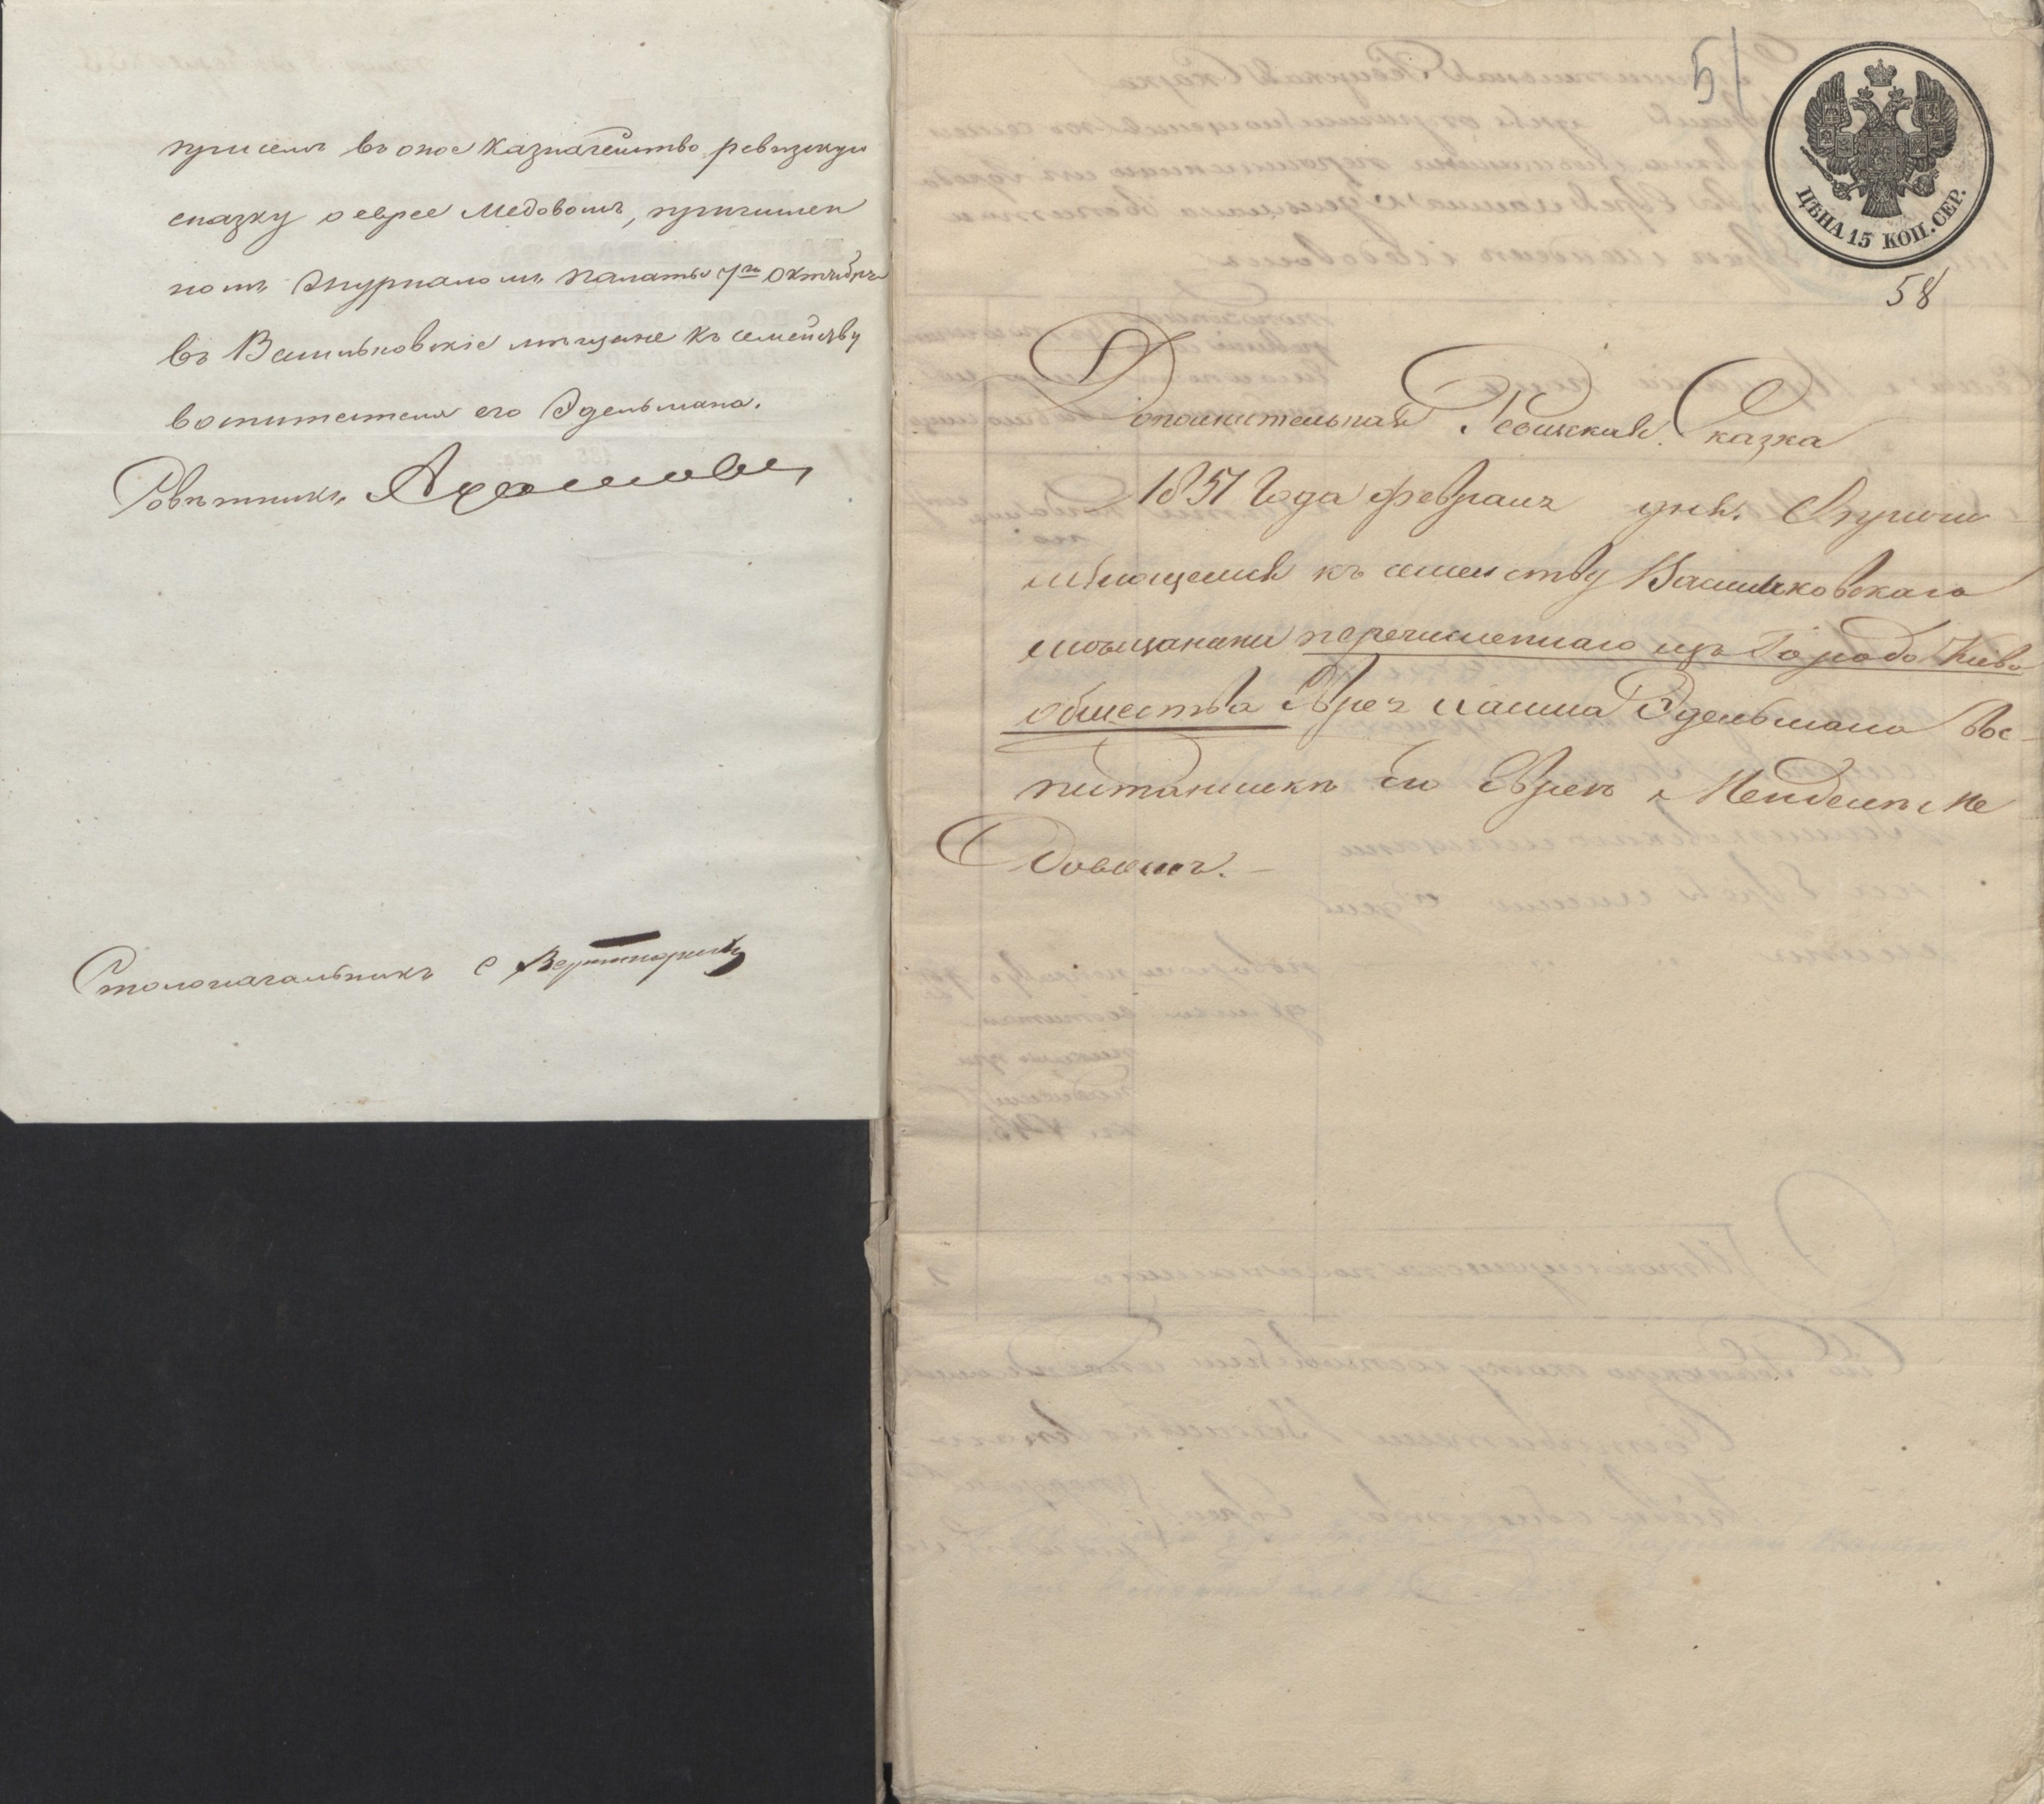 при семъ въ оное Казначейство ревизскую
сказку о еврее Медовомъ, причислен
номъ журналомъ палаты 7го Октября
въ Васильковскіе мещане къ семейству
воспитателя его Эдельмана.
Совѣтникъ
Столоначальникъ
51
ЦѢНА 15 КОП. СЕР.
58
Дополнительная Ревизская Сказка
1851 Года февраля дня. О причи
сляющемся къ семейству Васильковскаго
мѣщанина перечисленнаго изъ Города Кіева
общества Еврея Эдельмана Вос
питанникъ его Еврей Мендель Ме
довомъ.